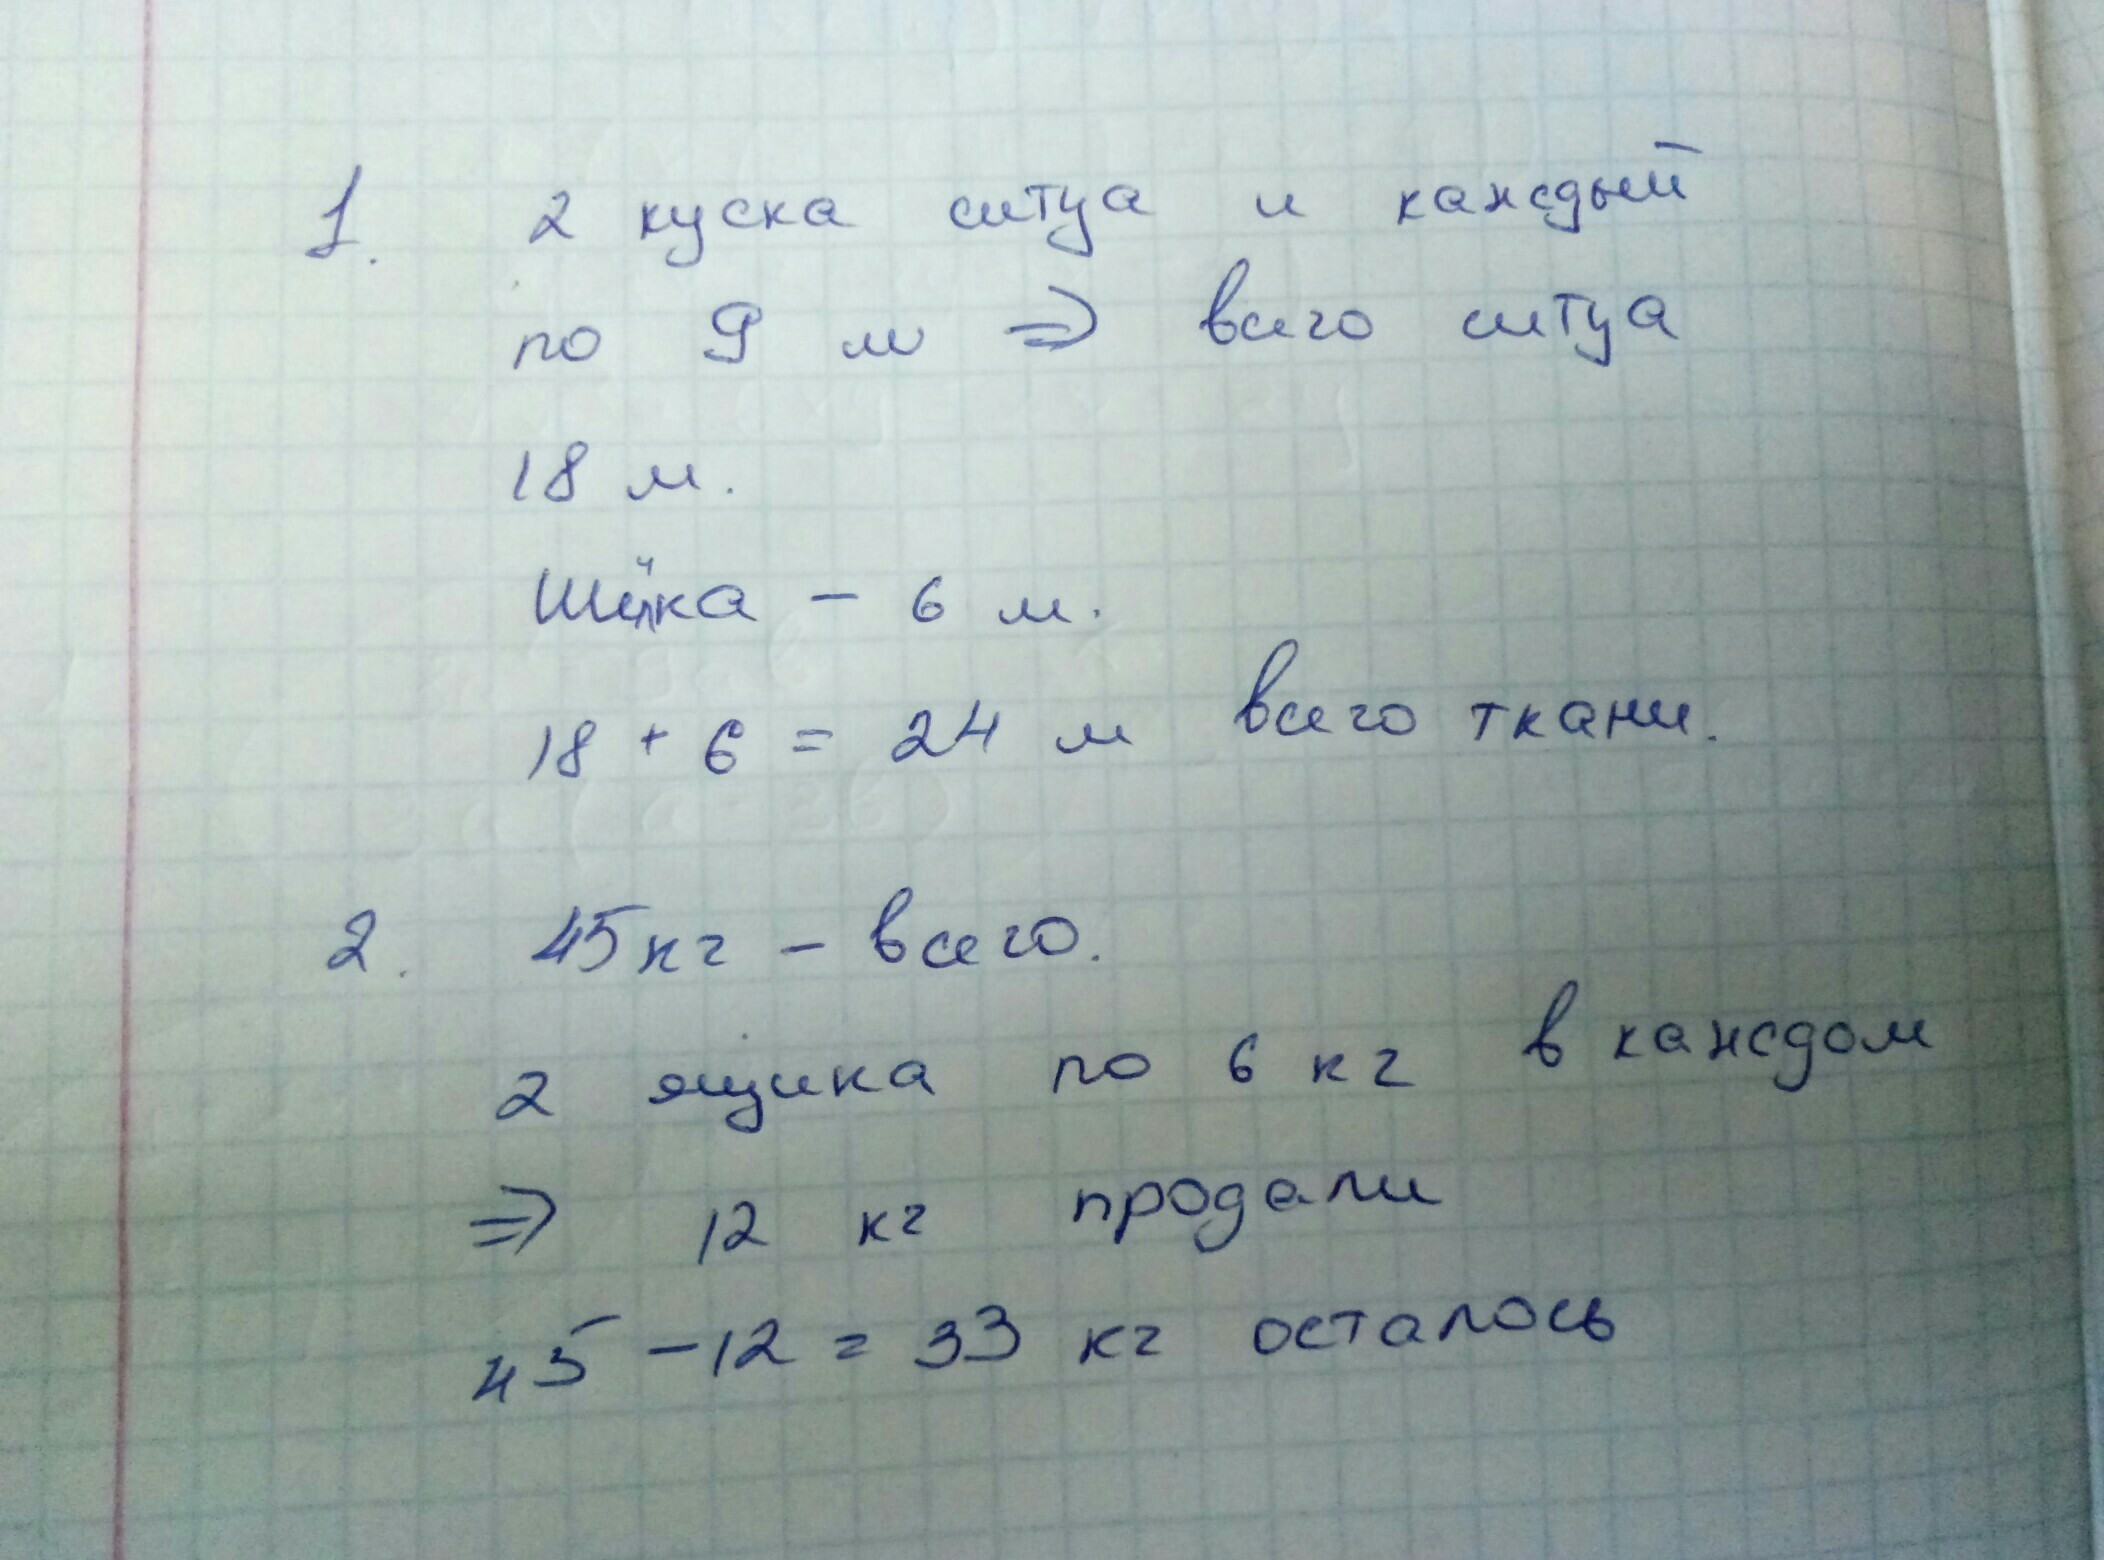 1. 2 куска ситца и каждый
по 9 м ⇒ всего ситца
18 м.
Шёлка – 6 м.
18 + 6 = 24 м всего ткани.
2. 45 кг – всего.
2 ящика по 6 кг в каждом
⇒ 12 кг продали
45 – 12 = 33 кг осталось